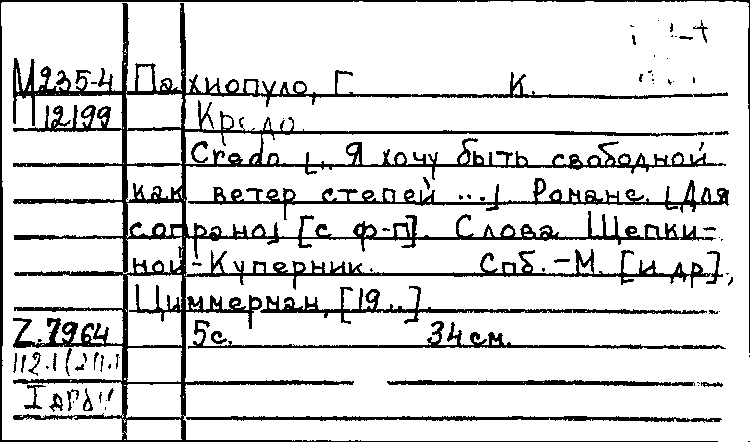 М235-4 Пахиопуло, Г. К.
М12199 Кредо
Credo [„Я хочу быть свободной
как ветер степей ...] Романс. [Для
сопрано] [с ф-п]. Слова Щепки-
ной-Куперник. Спб.-М. [и др],
Циммерман, [19..].
Z.7964 5с. 34см.